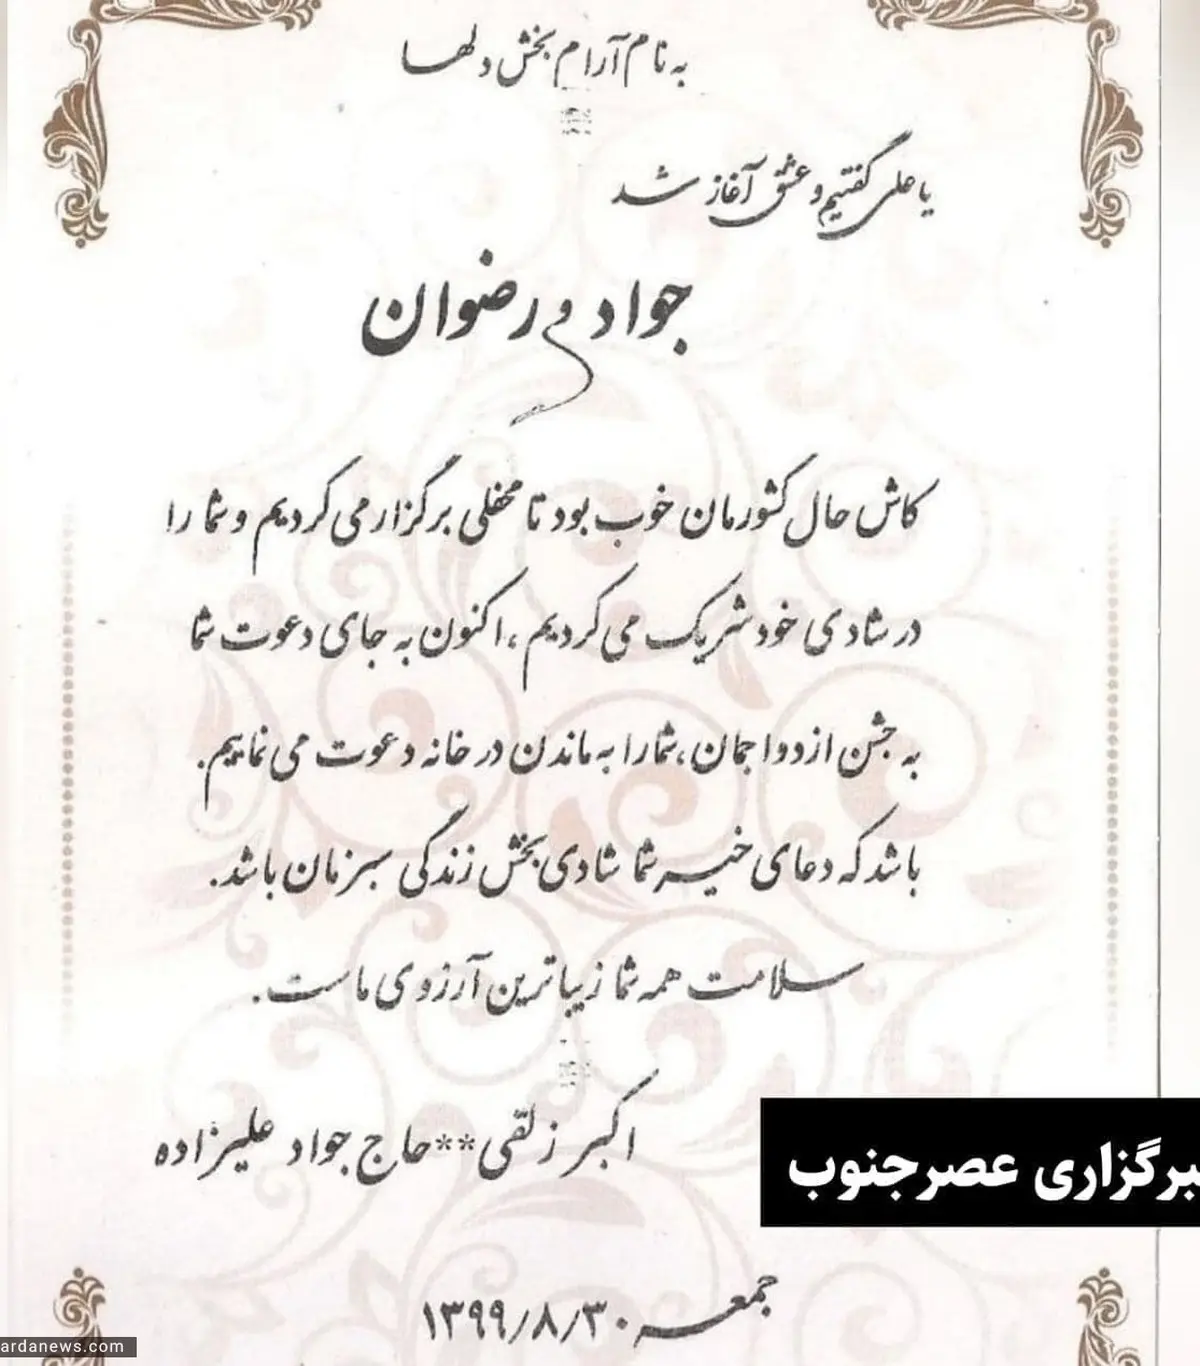 به نام آرام بخش دلها
یا علی گفتیم و عشق آغاز شد
جواد و رضوان
کاش حال کشورمان خوب بود تا محفلی برگزار می کردیم و شما را
در شادی خود شریک می کردیم ، اکنون به جای دعوت شما
به جشن ازدواجمان، شما را به ماندن در خانه دعوت می نماییم.
باشد که دعای خیر شما شادی بخش زندگی سبزمان باشد.
سلامت همه شما زیباترین آرزوی ماست.
اکبر زلقی**حاج جواد علیزاده
برگزاری عصرجنوب
جمعه ۱۳۹۹/۸/۳۰
ardanews.com